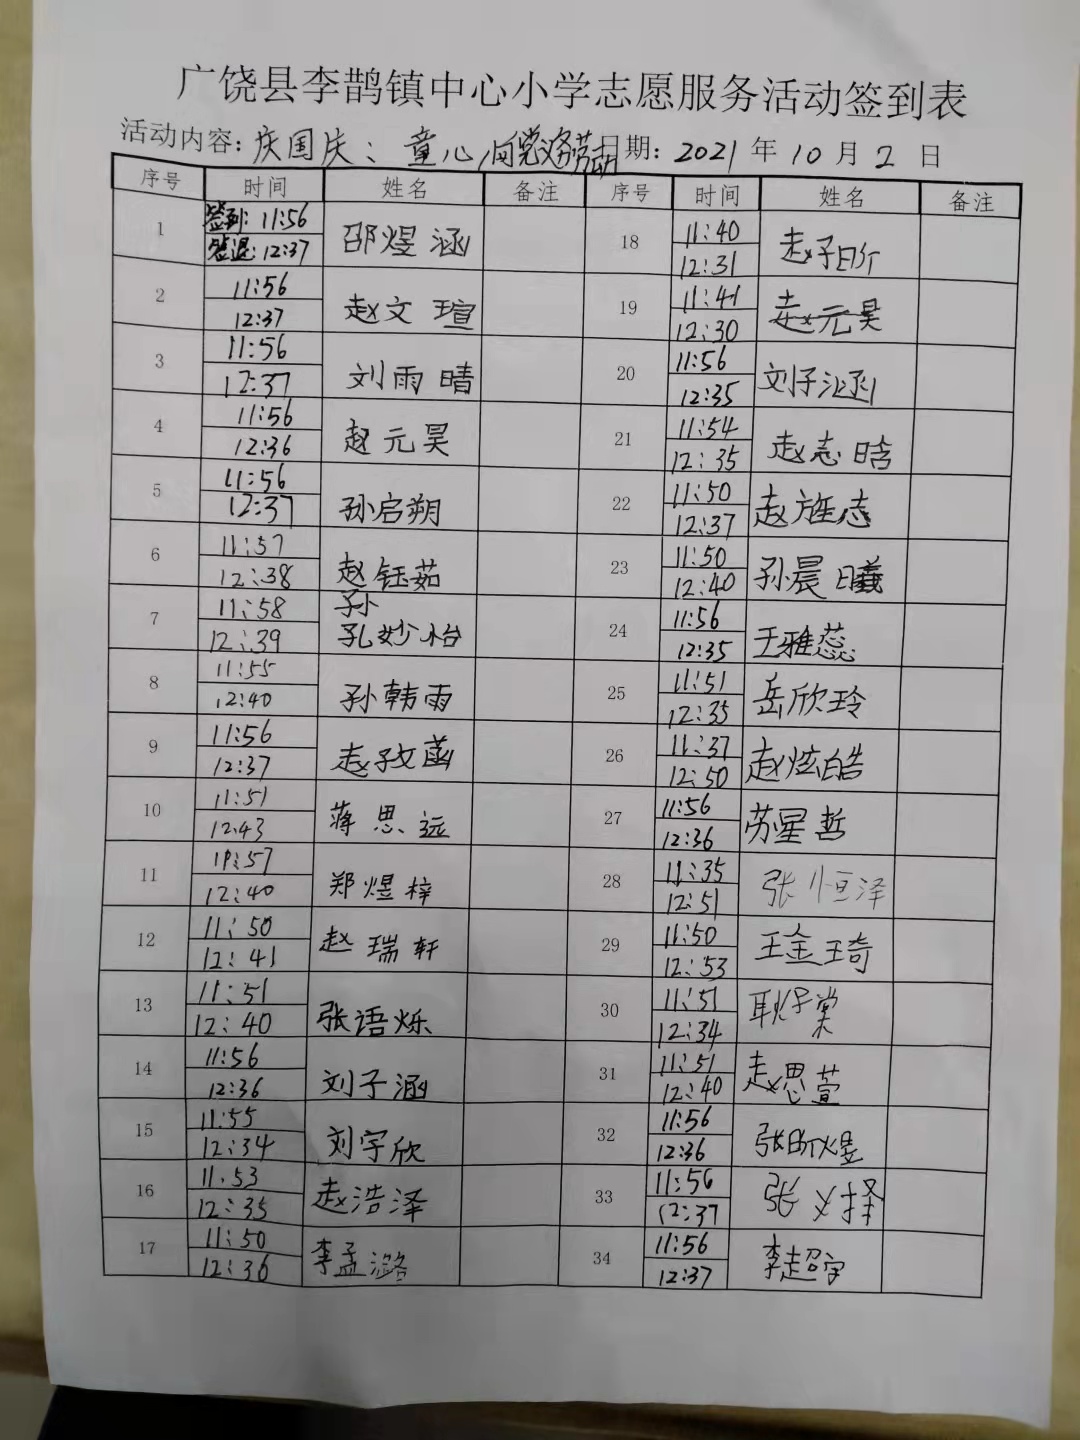 广饶县李鹊镇中心小学志愿服务活动签到表
活动内容: 庆国庆：童心向党义务劳动 日期: 2021 年 10 月 2 日
序号 时间 姓名 备注 序号 时间 姓名 备注
1 签到: 11:56 签退: 12:37 邵煜涵 18 11:40 12:31 赵子昕
2 11:56 12:37 赵文瑄 19 11:41 12:30 赵元昊
3 11:56 12:37 刘雨晴 20 11:56 12:35 刘子涵
4 11:56 12:36 赵元昊 21 11:54 12:35 赵志晗
5 11:56 12:37 孙启朔 22 11:50 12:37 赵旌志
6 11:57 12:38 赵钰茹 23 11:50 12:40 孙晨曦
7 11:58 12:39 孙 孔妙怡 24 11:56 12:35 王雅蕊
8 11:55 12:40 孙韩雨 25 11:51 12:35 岳欣玲
9 11:56 12:37 赵孜菡 26 11:37 12:50 赵炫皓
10 11:51 12:43 蒋思远 27 11:56 12:36 苏星哲
11 11:57 12:40 郑煜梓 28 11:35 12:51 张恒泽
12 11:50 12:41 赵瑞轩 29 11:50 12:53 王金琦
13 11:51 12:40 张语烁 30 11:51 12:34 耿梓棠
14 11:56 12:36 刘子涵 31 11:51 12:40 赵思萱
15 11:55 12:34 刘宇欣 32 11:56 12:36 张昕煜
16 11:53 12:35 赵浩泽 33 11:56 12:37 张义择
17 11:50 12:36 李孟潞 34 11:56 12:37 李超宇